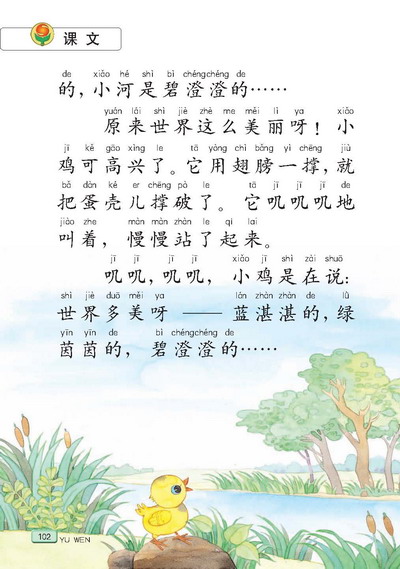 课文
de xiǎo hé shì bì chéngchéng de
的,小河是碧澄澄的……
yuán lái shì jiè zhè me měi lì ya xiǎo
原来世界这么美丽呀!小
jī kě gāo xìng le tā yòng chì bǎng yì chēng jiù
鸡可高兴了。它用翅膀一撑,就
bǎ dàn ké er chēng pò le tā jī jī jī de
把蛋壳儿撑破了。它叽叽叽地
jiào zhe màn màn zhàn le qǐ lai
叫着,慢慢站了起来。
jī jī jī jī xiǎo jī shì zài shuō
叽叽,叽叽,小鸡是在说:
shì jiè duō měi ya lán zhàn zhàn de lǜ
世界多美呀——蓝湛湛的,绿
yīn yīn de bì chéngchéng de
茵茵的,碧澄澄的……
102 YU WEN